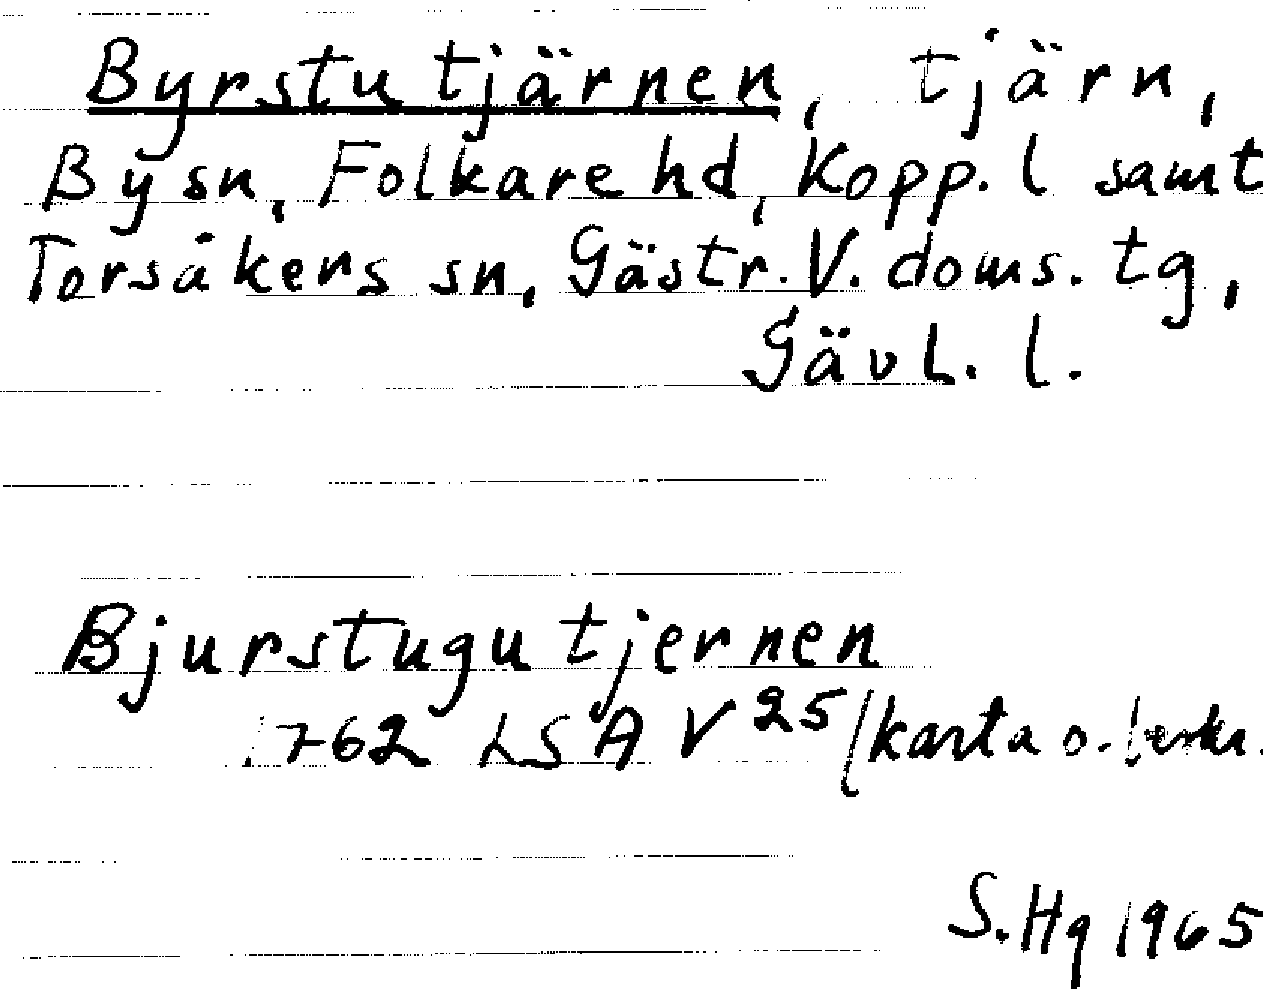 Byrstutjärnen, tjärn,
By sn, Folkare hd, Kopp. l samt
Torsåkers sn, Gästr. V. doms. tg,
Gävl. l.
Bjurstugutjernen
1762 LSA V25/karta o.
S. Hg 1965